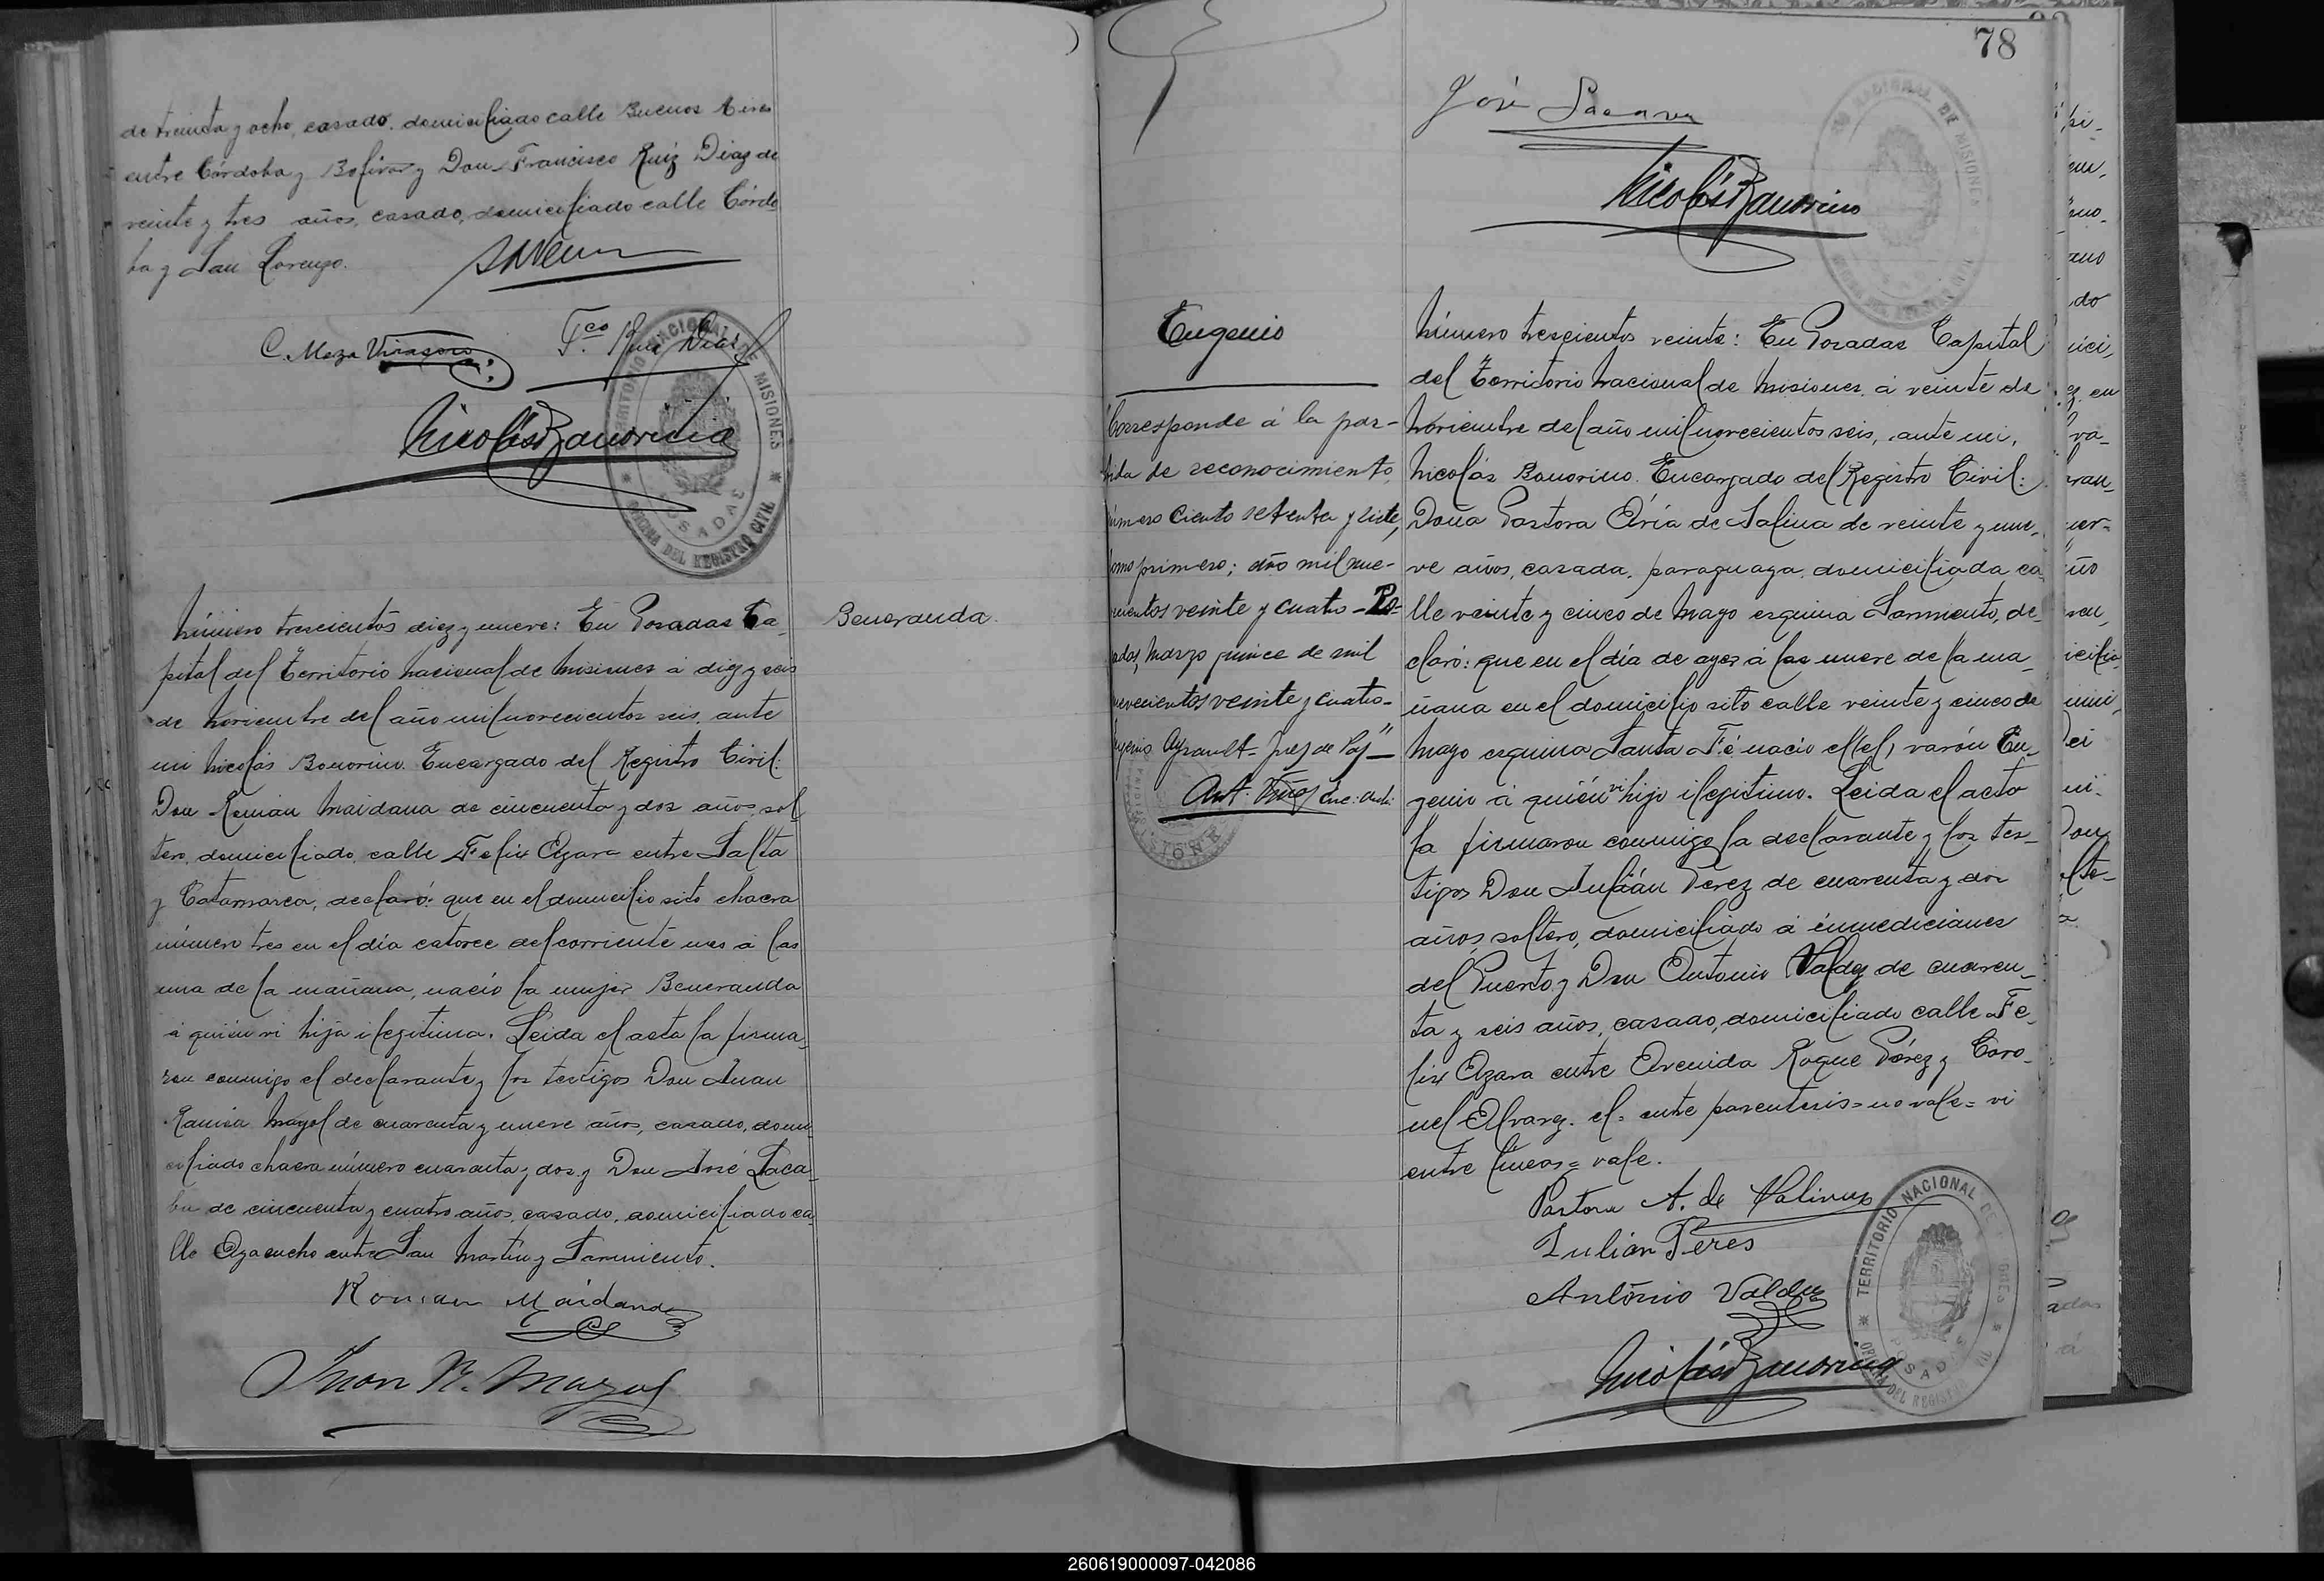 de treinta y ocho, casado, domiciliado calle Buenos Aires
entre Córdoba y Bolivar y Don Francisco Ruiz Diaz de
veinte y tres años, casado, domiciliado calle Córdo
ba y San Lorenzo.
C. Meza Virasoro
Fco. Ruiz Diaz
Nicolás Bonorino
TERRITORIO NACIONAL DE MISIONES
OFICINA DEL REGISTRO CIVIL
POSADAS
Número trescientos diez y nueve: En Posadas Ca_
pital del Territorio Nacional de Misiones á diez y seis
de Noviembre del año mil novecientos seis, ante
mi Nicolás Bonorino Encargado del Registro Civil:
Don Román Maidana de cincuenta y dos años, sol
tero, domiciliado, calle Felix Azara entre Salta
y Catamarca, declaró: que en el domicilio sito chacra
número tres en el día catorce del corriente mes á las
una de la mañana, nació la mujer Beneranda
á quién vi hija ilegitima. Leida el acta la firma_
ron conmigo el declarante y los testigos Don Juan
Mayol de cuarenta y nueve años, casado, domi
ciliado chacra número cuarenta y dos y Don José Laca_
ba de cincuenta y cuatro años, casado, domiciliado ca_
lle Ayacucho entre San Martín y Sarmiento.
Roman Maidana
Juan R. Mayol
Beneranda.
78
José Lacava
Nicolás Bonorino
Eugenio
Corresponde á la par-
tida de reconocimiento
número ciento setenta y siete,
tomo primero; año mil nue-
cientos veinte y cuatro - Po-
sadas, Marzo quince de mil
novecientos veinte y cuatro -
Eugenio Ayrault - Juez de Paz" -
Número trescientos veinte: En Posadas Capital
del Territorio Nacional de Misiones, á veinte de
Noviembre del año mil novecientos seis, ante mi,
Nicolás Bonorino Encargado del Registro Civil:
Doña Pastora Aria de Salina de veinte y nue_
ve años, casada, paraguaya, domiciliada ca_
lle veinte y cinco de Mayo esquina Sarmiento, de_
claró: que en el día de ayer á las nueve de la ma_
ñana en el domicilio sito calle veinte y cinco de
Mayo esquina Santa Fé nació el (el) varón Eu_
genio á quién vi hijo ilegitimo. Leida el acto
la firmaron conmigo la declarante y los tes_
tigos Don Julián Perez de cuarenta y dos
años, soltero, domiciliado á inmediciones
del Puerto y Don Antonio Valdez de cuaren_
ta y seis años, casado, domiciliado calle Fe_
lix Azara entre Avenida Roque Pérez y Coro_
nel Alvarez. el = entre parentesis = no vale = vi
entre lineas = vale.
Pastora A. de Salinas
Julian Peres
António Valdez
Nicolás Bonorino
TERRITORIO NACIONAL DE MISIONES
OFICINA DEL REGISTRO CIVIL
POSADAS
260619000097-042086